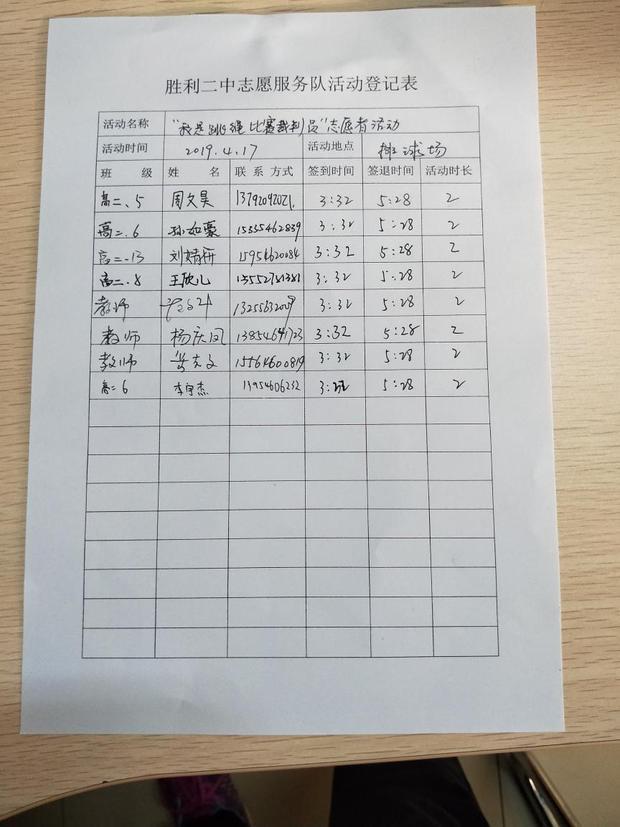 胜利二中志愿服务队活动登记表
活动名称 “我是跳绳比赛裁判员”志愿者活动
活动时间 2019.4.17 活动地点 排球场
班 级 姓 名 联系方式 签到时间 签退时间 活动时长
高二、5 周文昊 13792092021. 3:32 5:28 2
高二.6 孙如豪 15555462839 3:32 5:28 2
高二.13 刘婧妍 15954620084 3:32 5:28 2
高二.8 王欣儿 3:32 5:28 2
教师 3:32 5:28 2
教师 杨庆同 13854641723 3:32 5:28 2
教师 15564600819 3:32 5:28 2
高二6 李宇杰 3:32 5:28 2